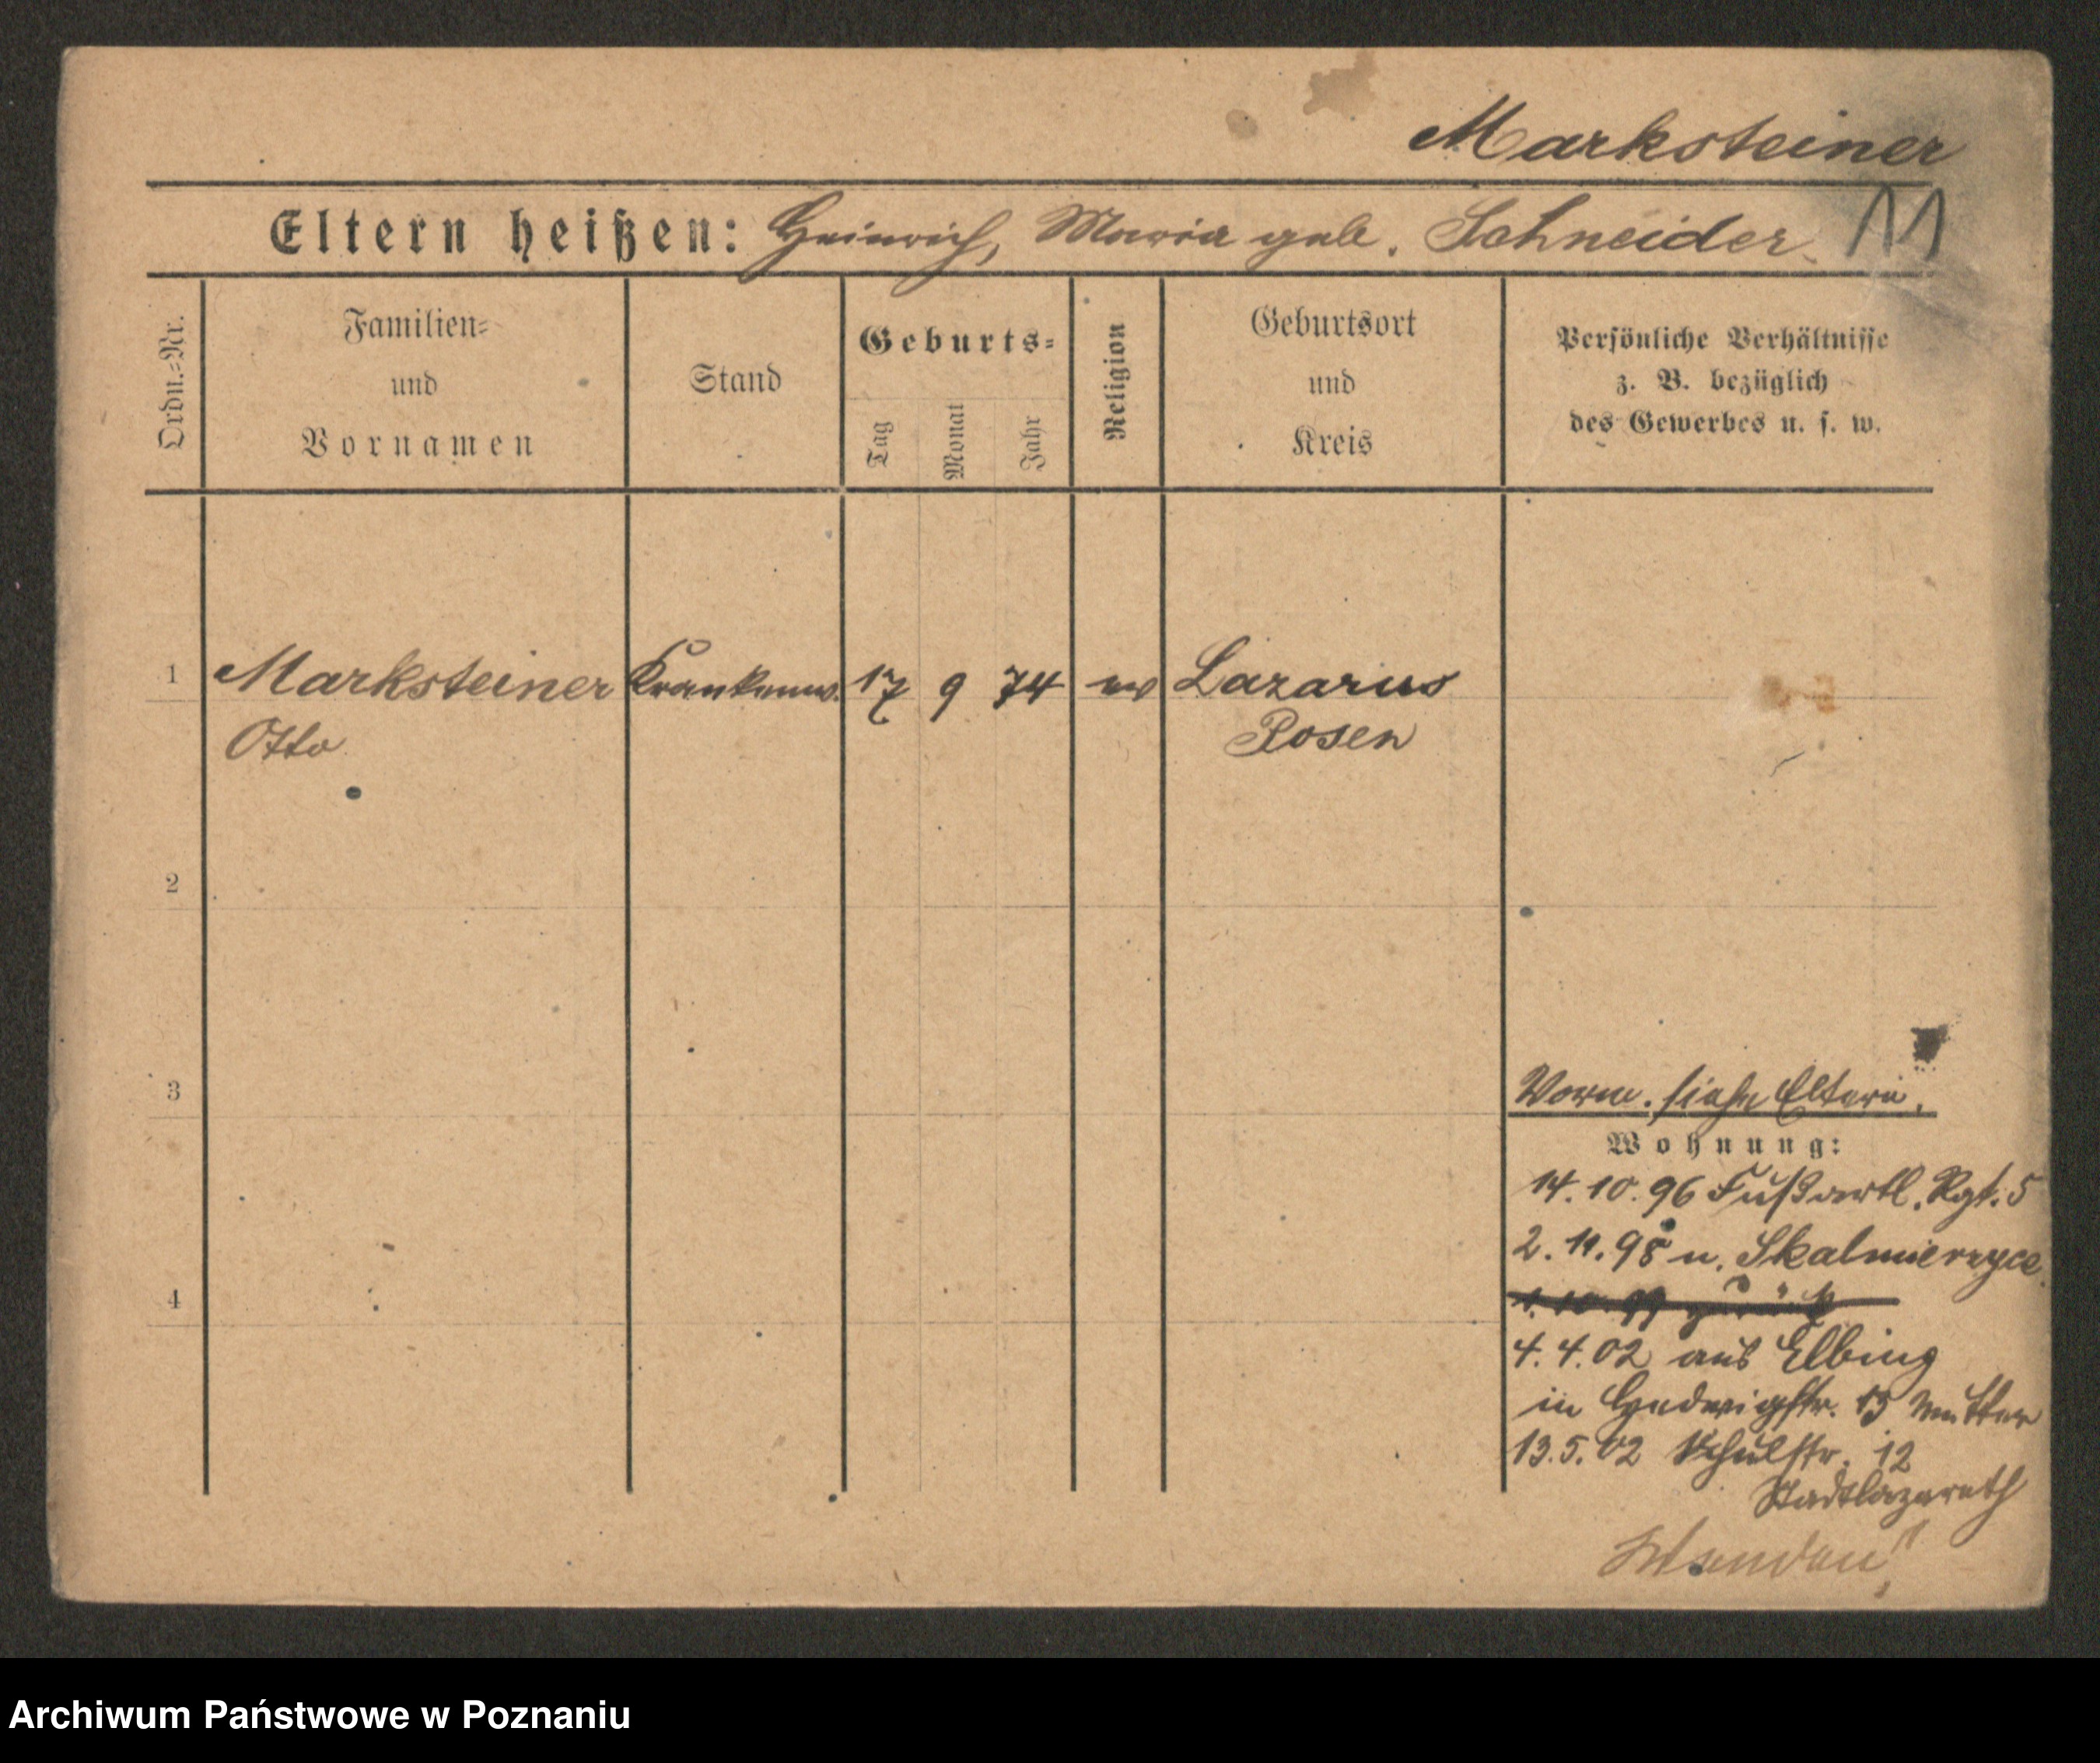 Marksteiner
Eltern heißen: Heinrich, Maria geb. Schneider.
Ordn.=Nr.
Familien=
und
Vornamen
Stand
Geburts=
Tag
Monat
Jahr
Religion
Geburtsort
und
Kreis
Persönliche Verhältnisse
z. B. bezüglich
des Gewerbes u. s. w.
1 Marksteiner Krankenw. 17 9 74 ev Lazarus
Otto Posen
2
3
Vorm. siehe Eltern.
Wohnung:
14. 10. 96 Fußartl. Rgt. 5
2. 11. 98 n. Skalmierzyce
4
1. 10. 99 zurück
4. 4. 02 aus Elbing
in Hedwigstr. 13 Mutter
13. 5. 02 Schulstr. 12
Stadtlazareth
Archiwum Państwowe w Poznaniu